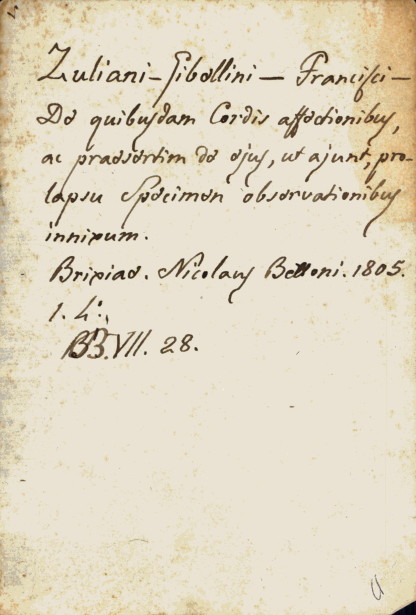 Zuliani-Gibellini — Francisci —
De quibusdam Cordis affectionibus,
ac praesertim de ejus, ut ajunt, pro-
lapsu Specimen observationibus
innixum.
Brixiae. Nicolaus Bettoni. 1805.
1. 4:
BB.VII. 28.